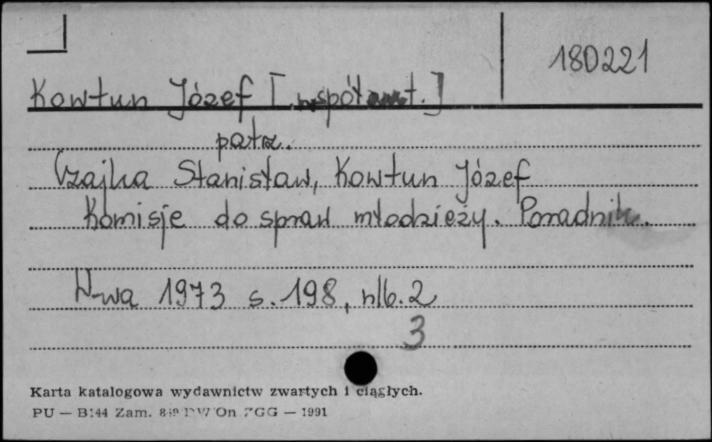 180221
Kowtun Józef [współaut.]
patrz.
Czajka Stanisław, Kowtun Józef
Komisje do spraw młodzieży. Poradnik.
W-wa 1973 s. 198, nlb. 2
3
Karta katalogowa wydawnictw zwartych i ciągłych.
PU — B144 Zam. ZGG — 1991